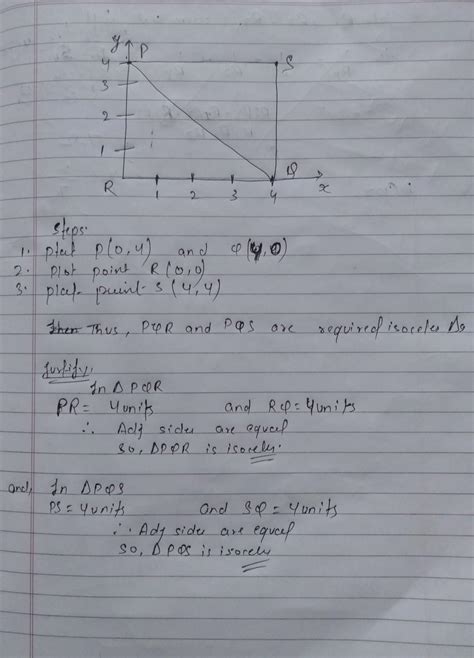 y P
4 S
3
2
1
R 1 2 3 4 Q x
Steps:
1. plot P(0,4) and Q(4,0)
2. plot point R(0,0)
3. plot point S(4,4)
Thus, PQR and PQS are required isoceles Δs
Justify:
In ΔPQR
PR = 4units and RQ = 4units
∴ Adj sides are equal
So, ΔPQR is isoceles.
and, In ΔPQS
PS = 4units and SQ = 4units
∴ Adj sides are equal
So, ΔPQS is isoceles